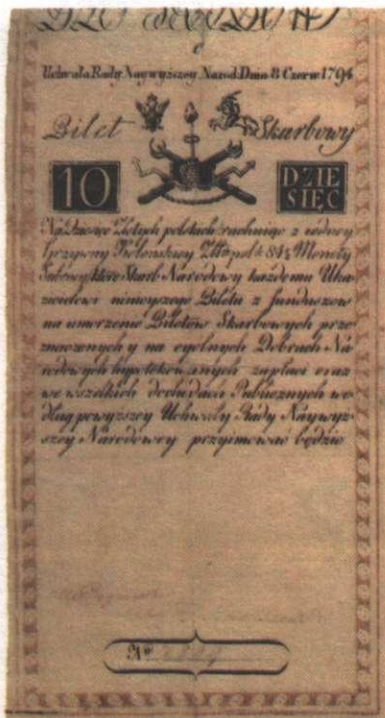 Uchwała Rady Naywyższey Narod: Dnia 8 Czerw: 1794
Bilet Skarbowy
10 DZIE
SIĘC
Na Dziesięć Złotych polskich rachuiąc z iedney
Grzywny Kolonskiey Złt: pol: 84½ Monety
Srebrney które Skarb Narodowy każdemu Oka-
zicielowi ninieyszego Biletu z funduszow
na umorzenie Biletow Skarbowych prze
znaczonych y na ogolnych Dobrach Na
rodowych hypotekowanych zapłaci oraz
we wszelkich dochodach Publicznych we-
dług powyższey Uchwały Rady Naywyż-
szey Narodowey przyimować będzie
No